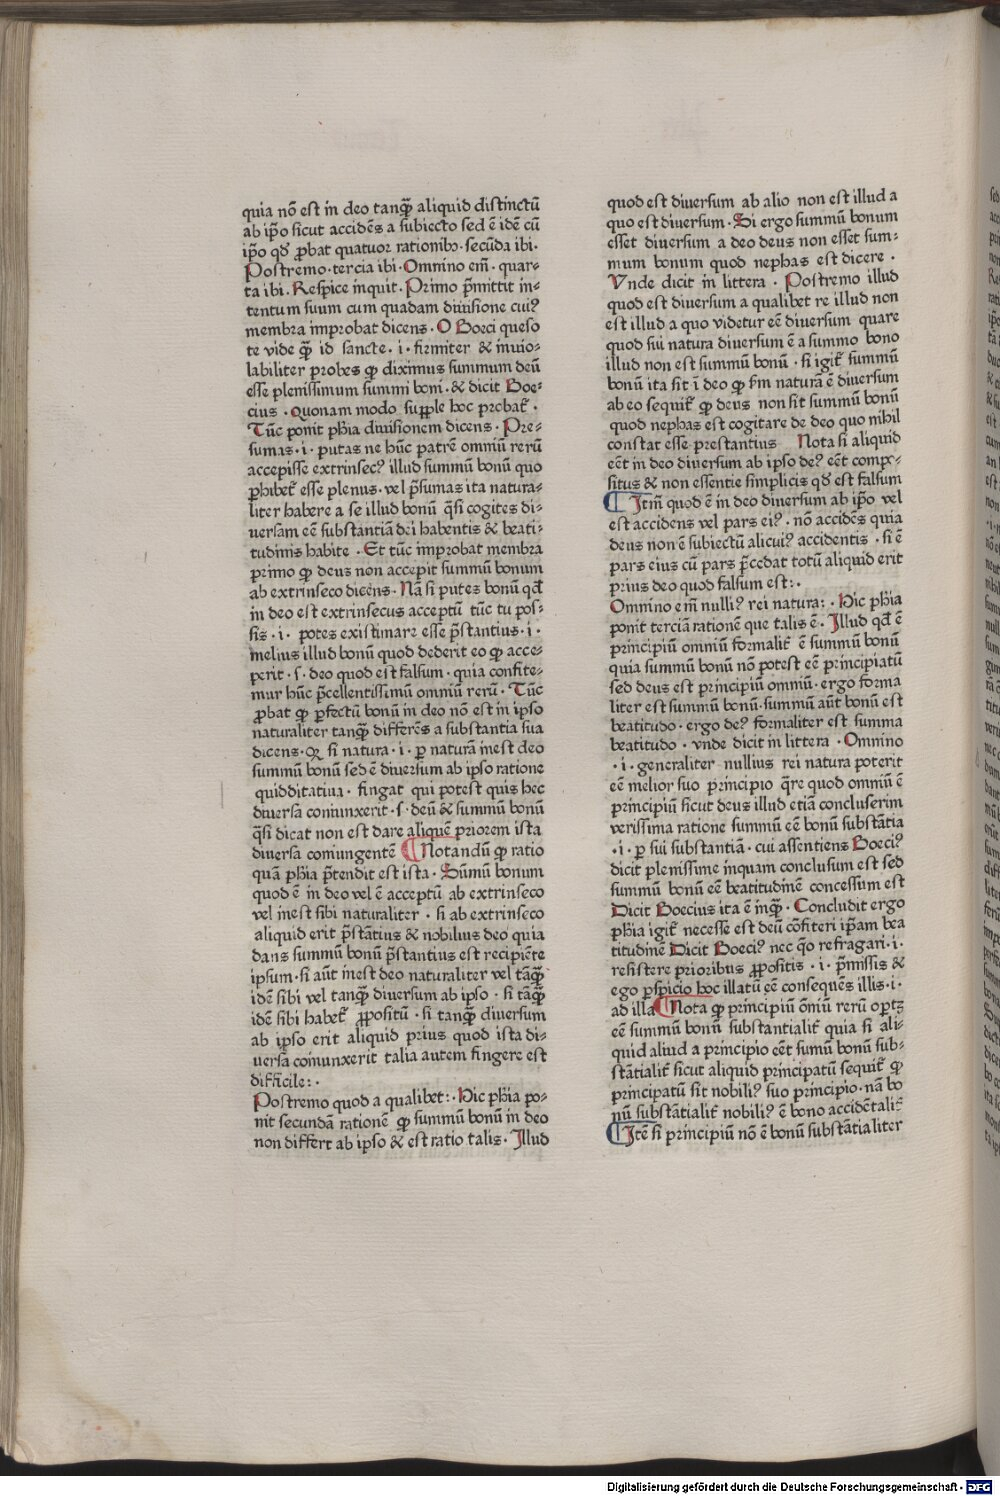 quia nō est in deo tanq̄ȝ aliquid distinctū
ab ip̄o sicut accidēs a subiecto sed ē idē cū
ip̄o qd̓ ꝓbat quatuor rationibꝰ· secūda ibi·
Postremo· tercia ibi· Omnino em̄· quar⸗
ta ibi. Respice inquit. Primo p̄mittit in⸗
tentum suum cum quadam diuisione cuiꝰ
membra improbat dicens· O Boeci queso
te vide q̄ȝ id sancte· i· firmiter & inuio⸗
labiliter probes ꝙ diximus summum deū
esse plenissimum summi boni· & dicit Boe⸗
cius · Quonam modo supple hoc probat̉·
Tūc ponit ph̄ia diuisionem dicens· Pre⸗
sumas· i· putas ne hūc patrē omniū rerū
accepisse extrinsecꝰ illud summū bonū quo
ꝑhibet̉ esse plenus· vel p̄sumas ita natura⸗
liter habere a se illud bonū q̄si cogites di⸗
uersam eē substantiā dei habentis & beati⸗
tudinis habite · Et tūc improbat membra
primo ꝙ deus non accepit summū bonum
ab extrinseco dicens· Nā si putes bonū qd̓
in deo est extrinsecus acceptū tūc tu pos⸗
sis· i· potes existimare esse p̄stantius· i·
melius illud bonū quod dederit eo ꝙ acce⸗
perit· s· deo quod est falsum· quia confite⸗
mur hūc p̄cellentissimū omniū rerū· Tūc
ꝓbat ꝙ ꝑfectū bonū in deo nō est in ipso
naturaliter tanq̄ȝ differēs a substantia sua
dicens· Q si natura· i· ꝑ naturā inest deo
summū bonū sed ē diuersum ab ipso ratione
quidditatiua· fingat qui potest quis hec
diuersa coniunxerit· s· deū & summū bonū
q̄si dicat non est dare aliquē priorem ista
diuersa coniungentē ¶ Notandū ꝙ ratio
quā ph̄ia p̄tendit est ista· Sūmū bonum
quod ē in deo vel ē acceptū ab extrinseco
vel inest sibi naturaliter· si ab extrinseco
aliquid erit p̄stātius & nobilius deo quia
dans summū bonū p̄stantius est recipiēte
ipsum· si aūt inest deo naturaliter vel tāq̄ȝ
idē sibi vel tanq̄ȝ diuersum ab ipso· si tāq̄ȝ
idē sibi habet̉ ꝓpositū· si tanq̄ȝ diuersum
ab ipso erit aliquid prius quod ista di⸗
uersā coniunxerit talia autem fingere est
difficile:·
Postremo quod a qualibet:· Hic ph̄ia po⸗
nit secundā rationē ꝙ summū bonū in deo
non differt ab ipso & est ratio talis· Illud
quod est diuersum ab alio non est illud a
quo est diuersum· Si ergo summū bonum
esset diuersum a deo deus non esset sum⸗
mum bonum quod nephas est dicere ·
Unde dicit in littera · Postremo illud
quod est diuersum a qualibet re illud non
est illud a quo videtur eē diuersum quare
quod sui natura diuersum ē a summo bono
illud non est summū bonū· si igit̉ summū
bonū ita sit ī deo ꝙ s̄m naturā ē diuersum
ab eo sequit̉ ꝙ deus non sit summū bonū
quod nephas est cogitare de deo quo nihil
constat esse prestantius Nota si aliquid
eēt in deo diuersum ab ipso deꝰ eēt compo⸗
situs & non essentie simplicis qd̓ est falsum
¶ Itm̄ quod ē in deo diuersum ab ip̄o vel
est accidens vel pars eiꝰ· nō accidēs quia
deus non ē subiectū alicuiꝰ accidentis· si ē
pars eius cū pars p̄cedat totū aliquid erit
prius deo quod falsum est:·
Omnino em̄ nulliꝰ rei natura:· Hic ph̄ia
ponit terciā rationē que talis ē· Illud qd̓ ē
principiū omniū formalit̉ ē summū bonū
quia summū bonū nō potest eē principiatū
sed deus est principiū omniū· ergo forma
liter est summū bonū· summū aūt bonū est
beatitudo· ergo deꝰ formaliter est summa
beatitudo· vnde dicit in littera· Omnino
· i· generaliter nullius rei natura poterit
eē melior suo principio q̄re quod omniū ē
principiū sicut deus illud etiā concluserim
verissima ratione summū eē bonū substātia
· i· ꝑ sui substantiā· cui assentiens Boeciꝰ
dicit plenissime inquam conclusum est sed
summū bonū eē beatitudinē concessum est
Dicit Boecius ita ē inq̄ȝ· Concludit ergo
ph̄ia igit̉ necesse est deū cōfiteri ip̄am bea
titudinē Dicit Boeciꝰ nec q̄o refragari· i·
resistere prioribus ꝓpositis· i· p̄missis &
ego ꝑspicio hoc illatū eē consequēs illis· i·
ad illa ¶ Nota ꝙ principiū ōmiū rerū oportȝ
eē summū bonū substantialit̉ quia si ali⸗
quid aliud a principio eēt sumū bonū sub⸗
stātialit̉ sicut aliquid principatū sequit̉ ꝙ
principatū sit nobiliꝰ suo principio· nā bo
nū substātialit̉ nobiliꝰ ē bono accidētalit̉
¶ Itē si principiū nō ē bonū substātialiter
Digitalisierung gefördert durch die Deutsche Forschungsgemeinschaft - DFG